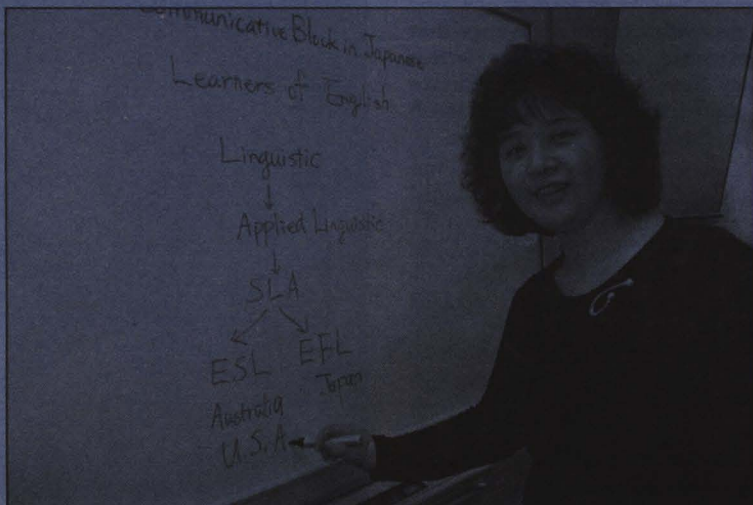 Communicative Block in Japanese
Learners of English
Linguistic
Applied Linguistic
SLA
ESL EFL
Australia Japan
U.S.A